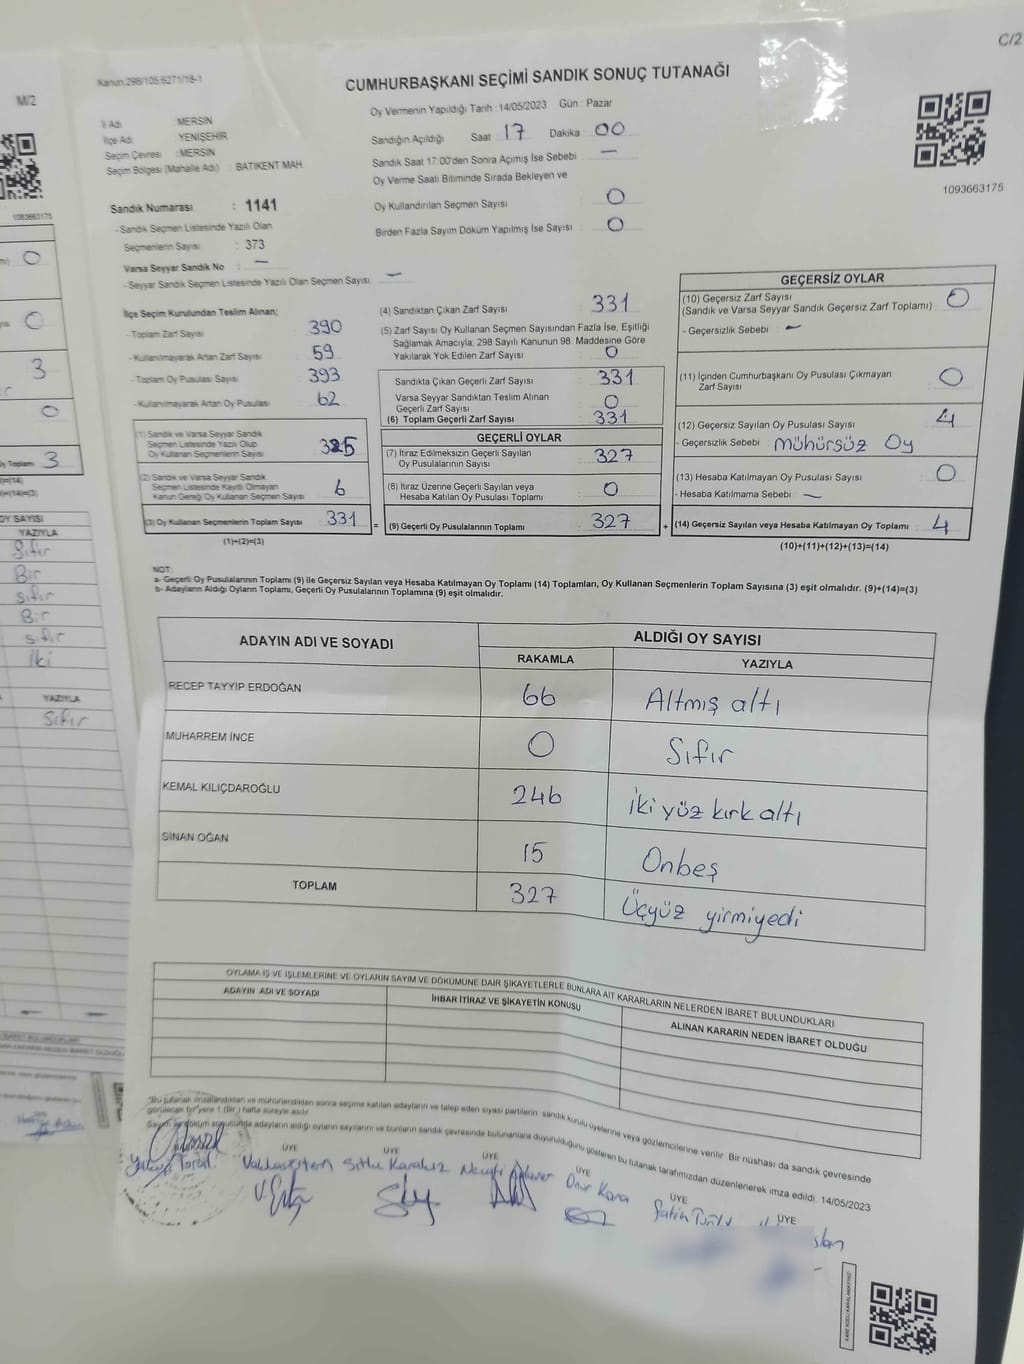 C/2
Kanun:298/105,6271/18-1
CUMHURBAŞKANI SEÇİMİ SANDIK SONUÇ TUTANAĞI
İl Adı : MERSİN
İlçe Adı : YENİŞEHİR
Seçim Çevresi : MERSİN
Seçim Bölgesi (Mahalle Adı) : BATIKENT MAH.
Sandık Numarası : 1141
- Sandık Seçmen Listesinde Yazılı Olan
Seçmenlerin Sayısı : 373
Varsa Seyyar Sandık No : —
- Seyyar Sandık Seçmen Listesinde Yazılı Olan Seçmen Sayısı: —
Oy Vermenin Yapıldığı Tarih :14/05/2023 Gün : Pazar
Sandığın Açıldığı Saat 17 Dakika 00
Sandık Saat 17:00'den Sonra Açımış İse Sebebi : —
Oy Verme Saati Bitiminde Sırada Bekleyen ve
Oy Kullandırılan Seçmen Sayısı : 0
Birden Fazla Sayım Döküm Yapılmış İse Sayısı : 0
1093663175
İlçe Seçim Kurulundan Teslim Alınan;
- Toplam Zarf Sayısı : 390
- Kullanılmayarak Artan Zarf Sayısı : 59
- Toplam Oy Pusulası Sayısı : 393
- Kullanılmayarak Artan Oy Pusulası : 62
(1) Sandık ve Varsa Seyyar Sandık
Seçmen Listesinde Yazılı Olup
Oy Kullanan Seçmenlerin Sayısı 325
(2) Sandık ve Varsa Seyyar Sandık
Seçmen Listesinde Kayıtlı Olmayan
Kanun Gereği Oy Kullanan Seçmen Sayısı 6
(3) Oy Kullanan Seçmenlerin Toplam Sayısı 331
(1)+(2)=(3)
(4) Sandıktan Çıkan Zarf Sayısı : 331
(5) Zarf Sayısı Oy Kullanan Seçmen Sayısından Fazla İse, Eşitliği
Sağlamak Amacıyla; 298 Sayılı Kanunun 98. Maddesine Göre
Yakılarak Yok Edilen Zarf Sayısı : 0
Sandıkta Çıkan Geçerli Zarf Sayısı : 331
Varsa Seyyar Sandıktan Teslim Alınan
Geçerli Zarf Sayısı : 0
(6) Toplam Geçerli Zarf Sayısı : 331
GEÇERLİ OYLAR
(7) İtiraz Edilmeksizin Geçerli Sayılan
Oy Pusulalarının Sayısı : 327
(8) İtiraz Üzerine Geçerli Sayılan veya
Hesaba Katılan Oy Pusulası Toplamı : 0
= (9) Geçerli Oy Pusulalarının Toplamı : 327
GEÇERSİZ OYLAR
(10) Geçersiz Zarf Sayısı
(Sandık ve Varsa Seyyar Sandık Geçersiz Zarf Toplamı) : 0
- Geçersizlik Sebebi : —
(11) İçinden Cumhurbaşkanı Oy Pusulası Çıkmayan
Zarf Sayısı : 0
(12) Geçersiz Sayılan Oy Pusulası Sayısı : 4
- Geçersizlik Sebebi : mühürsüz Oy
(13) Hesaba Katılmayan Oy Pusulası Sayısı : 0
- Hesaba Katılmama Sebebi : —
+ (14) Geçersiz Sayılan veya Hesaba Katılmayan Oy Toplamı : 4
(10)+(11)+(12)+(13)=(14)
NOT:
a- Geçerli Oy Pusulalarının Toplamı (9) ile Geçersiz Sayılan veya Hesaba Katılmayan Oy Toplamı (14) Toplamları, Oy Kullanan Seçmenlerin Toplam Sayısına (3) eşit olmalıdır. (9)+(14)=(3)
b- Adayların Aldığı Oyların Toplamı, Geçerli Oy Pusulalarının Toplamına (9) eşit olmalıdır.
ADAYIN ADI VE SOYADI ALDIĞI OY SAYISI
RAKAMLA YAZIYLA
RECEP TAYYİP ERDOĞAN 66 Altmış altı
MUHARREM İNCE 0 Sıfır
KEMAL KILIÇDAROĞLU 246 iki yüz kırk altı
SİNAN OĞAN 15 Onbeş
TOPLAM 327 Üçyüz yirmiyedi
OYLAMA İŞ VE İŞLEMLERİNE VE OYLARIN SAYIM VE DÖKÜMÜNE DAİR ŞİKAYETLERLE BUNLARA AİT KARARLARIN NELERDEN İBARET BULUNDUKLARI
ADAYIN ADI VE SOYADI İHBAR İTİRAZ VE ŞİKAYETİN KONUSU ALINAN KARARIN NEDEN İBARET OLDUĞU
"Bu tutanak imzalandıktan ve mühürlendikten sonra seçime katılan adayların ve talep eden siyasi partilerin sandık kurulu üyelerine veya gözlemcilerine verilir. Bir nüshası da sandık çevresinde
görülecek bir yere 1 (Bir) hafta süreyle asılır.
Sayım ve döküm sonucunda adayların aldığı oyların sayılarını ve bunların sandık çevresinde bulunanlara duyurulduğunu gösteren bu tutanak tarafımızdan düzenlenerek imza edildi. 14/05/2023
ÜYE ÜYE ÜYE ÜYE ÜYE ÜYE
Onur Kara
M/2
1093663175
0
0
3
0
Oy Toplamı 3
OY SAYISI
YAZIYLA
Sıfır
Bir
sıfır
Bir
sıfır
İki
YAZIYLA
Sıfır